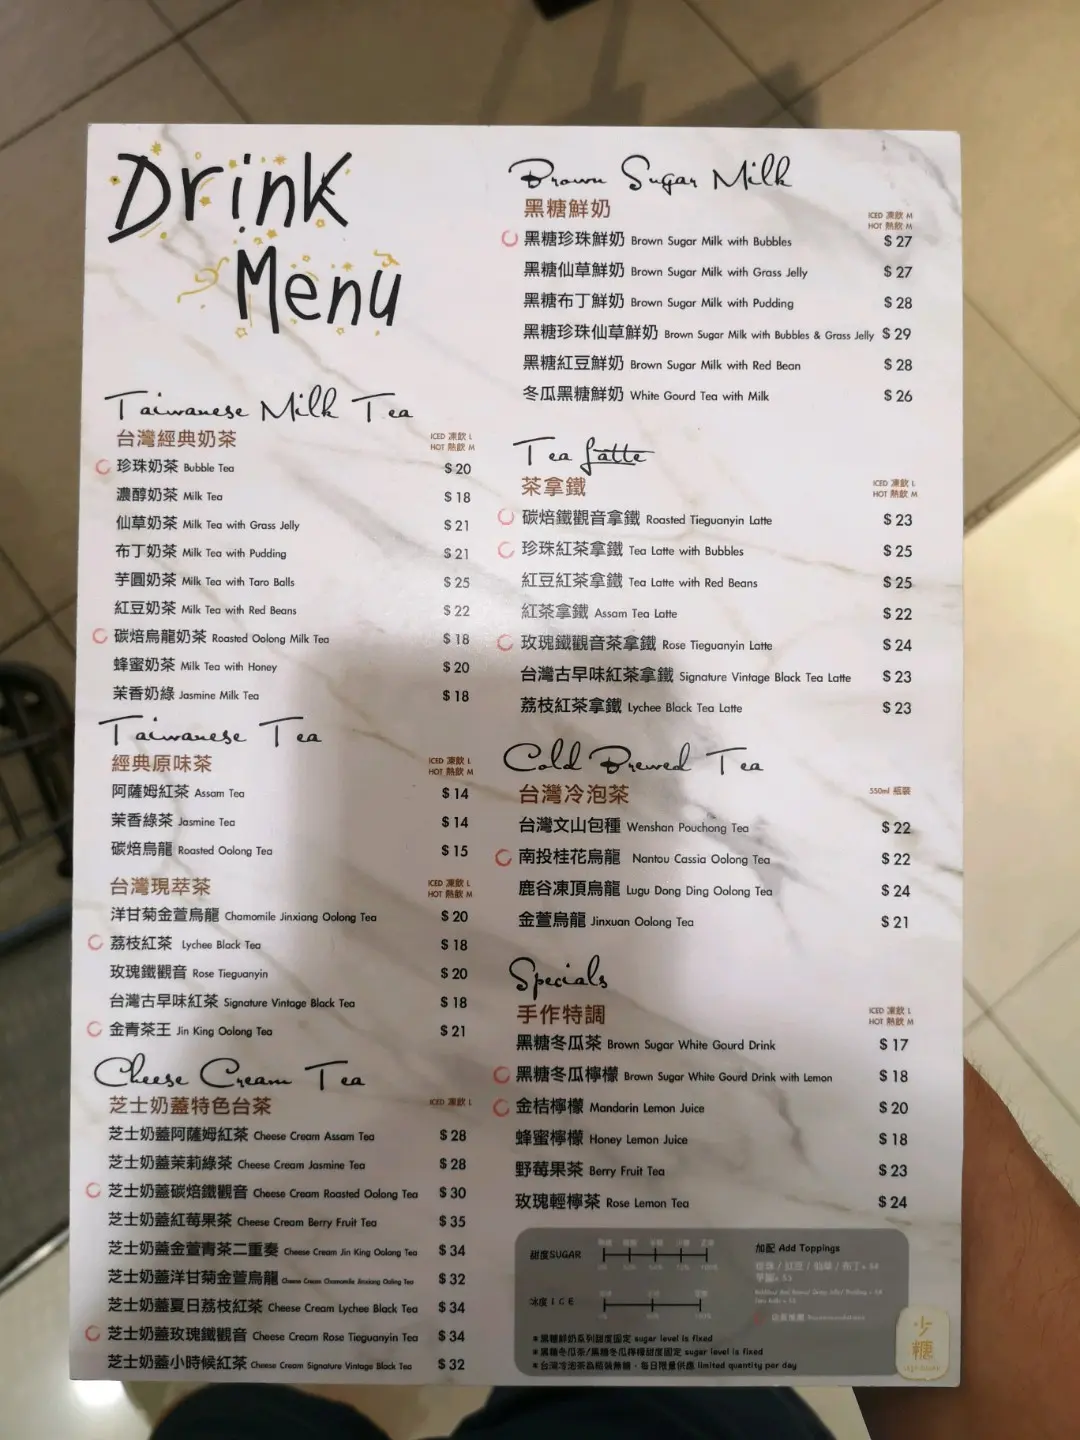 Drink
Menu
Taiwanese Milk Tea
台灣經典奶茶
ICED 凍飲 L
HOT 熱飲 M
珍珠奶茶 Bubble Tea $ 20
濃醇奶茶 Milk Tea $ 18
仙草奶茶 Milk Tea with Grass Jelly $ 21
布丁奶茶 Milk Tea with Pudding $ 21
芋圓奶茶 Milk Tea with Taro Balls $ 25
紅豆奶茶 Milk Tea with Red Beans $ 22
碳焙烏龍奶茶 Roasted Oolong Milk Tea $ 18
蜂蜜奶茶 Milk Tea with Honey $ 20
茉香奶綠 Jasmine Milk Tea $ 18
Taiwanese Tea
經典原味茶
ICED 凍飲 L
HOT 熱飲 M
阿薩姆紅茶 Assam Tea $ 14
茉香綠茶 Jasmine Tea $ 14
碳焙烏龍 Roasted Oolong Tea $ 15
台灣現萃茶
ICED 凍飲 L
HOT 熱飲 M
洋甘菊金萱烏龍 Chamomile Jinxiang Oolong Tea $ 20
荔枝紅茶 Lychee Black Tea $ 18
玫瑰鐵觀音 Rose Tieguanyin $ 20
台灣古早味紅茶 Signature Vintage Black Tea $ 18
金青茶王 Jin King Oolong Tea $ 21
Cheese Cream Tea
芝士奶蓋特色台茶
ICED 凍飲 L
芝士奶蓋阿薩姆紅茶 Cheese Cream Assam Tea $ 28
芝士奶蓋茉莉綠茶 Cheese Cream Jasmine Tea $ 28
芝士奶蓋碳焙鐵觀音 Cheese Cream Roasted Oolong Tea $ 30
芝士奶蓋紅莓果茶 Cheese Cream Berry Fruit Tea $ 35
芝士奶蓋金萱青茶二重奏 Cheese Cream Jin King Oolong Tea $ 34
芝士奶蓋洋甘菊金萱烏龍 Cheese Cream Chamomile Jinxiang Oolong Tea $ 32
芝士奶蓋夏日荔枝紅茶 Cheese Cream Lychee Black Tea $ 34
芝士奶蓋玫瑰鐵觀音 Cheese Cream Rose Tieguanyin Tea $ 34
芝士奶蓋小時候紅茶 Cheese Cream Signature Vintage Black Tea $ 32
Brown Sugar Milk
黑糖鮮奶
ICED 凍飲 M
HOT 熱飲 M
黑糖珍珠鮮奶 Brown Sugar Milk with Bubbles $ 27
黑糖仙草鮮奶 Brown Sugar Milk with Grass Jelly $ 27
黑糖布丁鮮奶 Brown Sugar Milk with Pudding $ 28
黑糖珍珠仙草鮮奶 Brown Sugar Milk with Bubbles & Grass Jelly $ 29
黑糖紅豆鮮奶 Brown Sugar Milk with Red Bean $ 28
冬瓜黑糖鮮奶 White Gourd Tea with Milk $ 26
Tea Latte
茶拿鐵
ICED 凍飲 L
HOT 熱飲 M
碳焙鐵觀音拿鐵 Roasted Tieguanyin Latte $ 23
珍珠紅茶拿鐵 Tea Latte with Bubbles $ 25
紅豆紅茶拿鐵 Tea Latte with Red Beans $ 25
紅茶拿鐵 Assam Tea Latte $ 22
玫瑰鐵觀音茶拿鐵 Rose Tieguanyin Latte $ 24
台灣古早味紅茶拿鐵 Signature Vintage Black Tea Latte $ 23
荔枝紅茶拿鐵 Lychee Black Tea Latte $ 23
Cold Brewed Tea
台灣冷泡茶
550ml 瓶裝
台灣文山包種 Wenshan Pouchong Tea $ 22
南投桂花烏龍 Nantou Cassia Oolong Tea $ 22
鹿谷凍頂烏龍 Lugu Dong Ding Oolong Tea $ 24
金萱烏龍 Jinxuan Oolong Tea $ 21
Specials
手作特調
ICED 凍飲 L
HOT 熱飲 M
黑糖冬瓜茶 Brown Sugar White Gourd Drink $ 17
黑糖冬瓜檸檬 Brown Sugar White Gourd Drink with Lemon $ 18
金桔檸檬 Mandarin Lemon Juice $ 20
蜂蜜檸檬 Honey Lemon Juice $ 18
野莓果茶 Berry Fruit Tea $ 23
玫瑰輕檸茶 Rose Lemon Tea $ 24
甜度SUGAR
冰度 ICE
加配 Add Toppings
*黑糖鮮奶系列甜度固定 sugar level is fixed
*黑糖冬瓜茶/黑糖冬瓜檸檬甜度固定 sugar level is fixed
*台灣冷泡茶為瓶裝無糖，每日限量供應 limited quantity per day
少糖